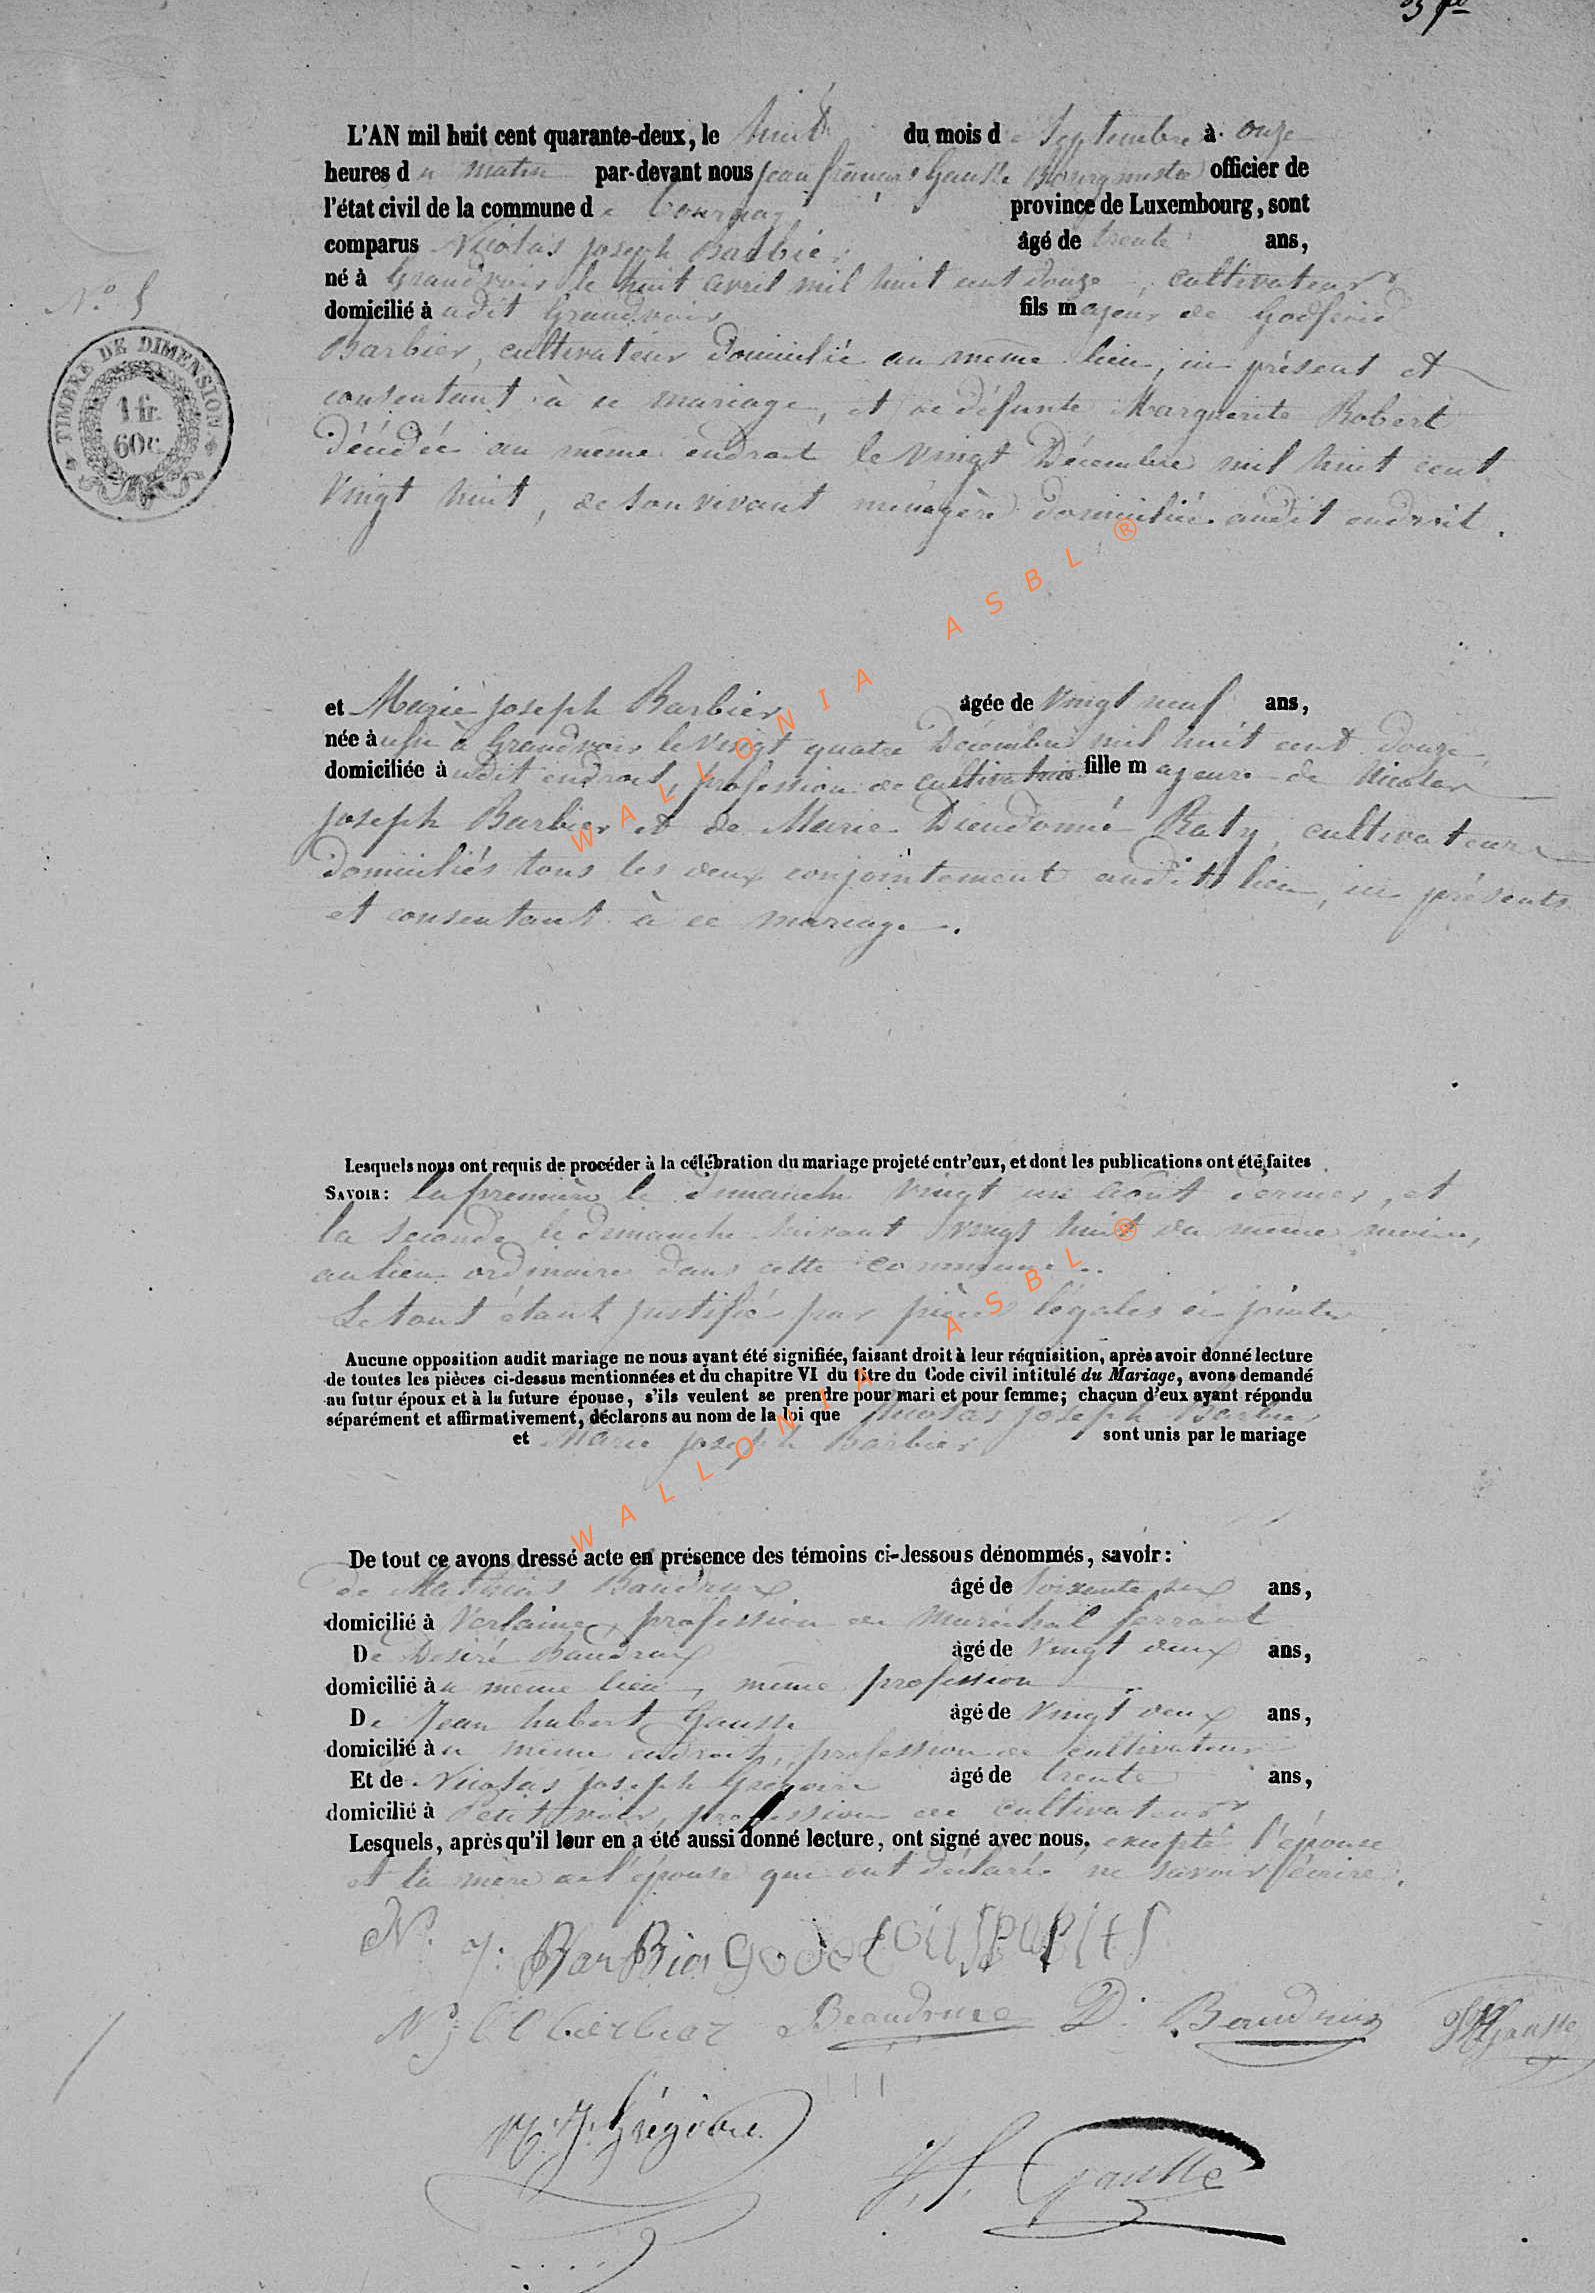 L'AN mil huit cent quarante-deux, le huit du mois de Septembre à onze
heures du matin par-devant nous jean françois Gausse Bourgmestre officier de
l'état civil de la commune de Tournay, province de Luxembourg, sont
comparus Nicolas joseph Barbier âgé de trente ans,
né à Grandvoir le huit avril mil huit cent douze, cultivateur
domicilié à udit Grandvoir fils majeur de Godfroid
Barbier, cultivateur domicilié au même lieu, ici présent et
consentant à ce mariage, et de défunte Marguerite Robert
décédée au même endroit le vingt Décembre mil huit cent
vingt huit, de son vivant ménagère domiciliée audit endroit.
N.° 5
TIMBRE DE DIMENSION
1 fr.
60 c.
et Marie joseph Barbier âgée de vingt neuf ans,
née à Grandvoir le vingt quatre Décembre mil huit cent douze,
domiciliée à udit endroit, profession de cultivatrice fille majeure de Nicolas
joseph Barbier et de Marie Dieudonné Raty, cultivateurs
domiciliés tous les deux conjointement audit lieu, ici présents
et consentant à ce mariage.
Lesquels nous ont requis de procéder à la célébration du mariage projeté entr'eux, et dont les publications ont été faites
SAVOIR: la première le dimanche vingt un août dernier, et
la seconde le dimanche suivant vingt huit du même mois,
au lieu ordinaire dans cette commune.
Le tout étant justifié par pièces légales ci jointes
Aucune opposition audit mariage ne nous ayant été signifiée, faisant droit à leur réquisition, après avoir donné lecture
de toutes les pièces ci-dessus mentionnées et du chapitre VI du titre du Code civil intitulé du Mariage, avons demandé
au futur époux et à la future épouse, s'ils veulent se prendre pour mari et pour femme; chacun d'eux ayant répondu
séparément et affirmativement, déclarons au nom de la loi que Nicolas joseph Barbier
et Marie joseph Barbier sont unis par le mariage
De tout ce avons dressé acte en présence des témoins ci-dessous dénommés, savoir:
de Mathias Baudrux âgé de soixante six ans,
domicilié à Verlaine, profession de maréchal ferrant
De Désiré Baudrux âgé de vingt deux ans,
domicilié à u même lieu, même profession
De Jean hubert Gausse âgé de vingt deux ans,
domicilié à u même endroit, profession de cultivateur
Et de Nicolas joseph Grégoire âgé de trente ans,
domicilié à Petitvoir, profession de cultivateur
Lesquels, après qu'il leur en a été aussi donné lecture, ont signé avec nous. excepté l'épouse
et la mère de l'épouse qui ont déclaré ne savoir écrire.
N. J: BarBier
N: j Barbier Beaudrux D. Baudrux JH Gausse
N. J. Grégoire
J. f. Gausse
WALLONIA ASBL ®
WALLONIA ASBL ®